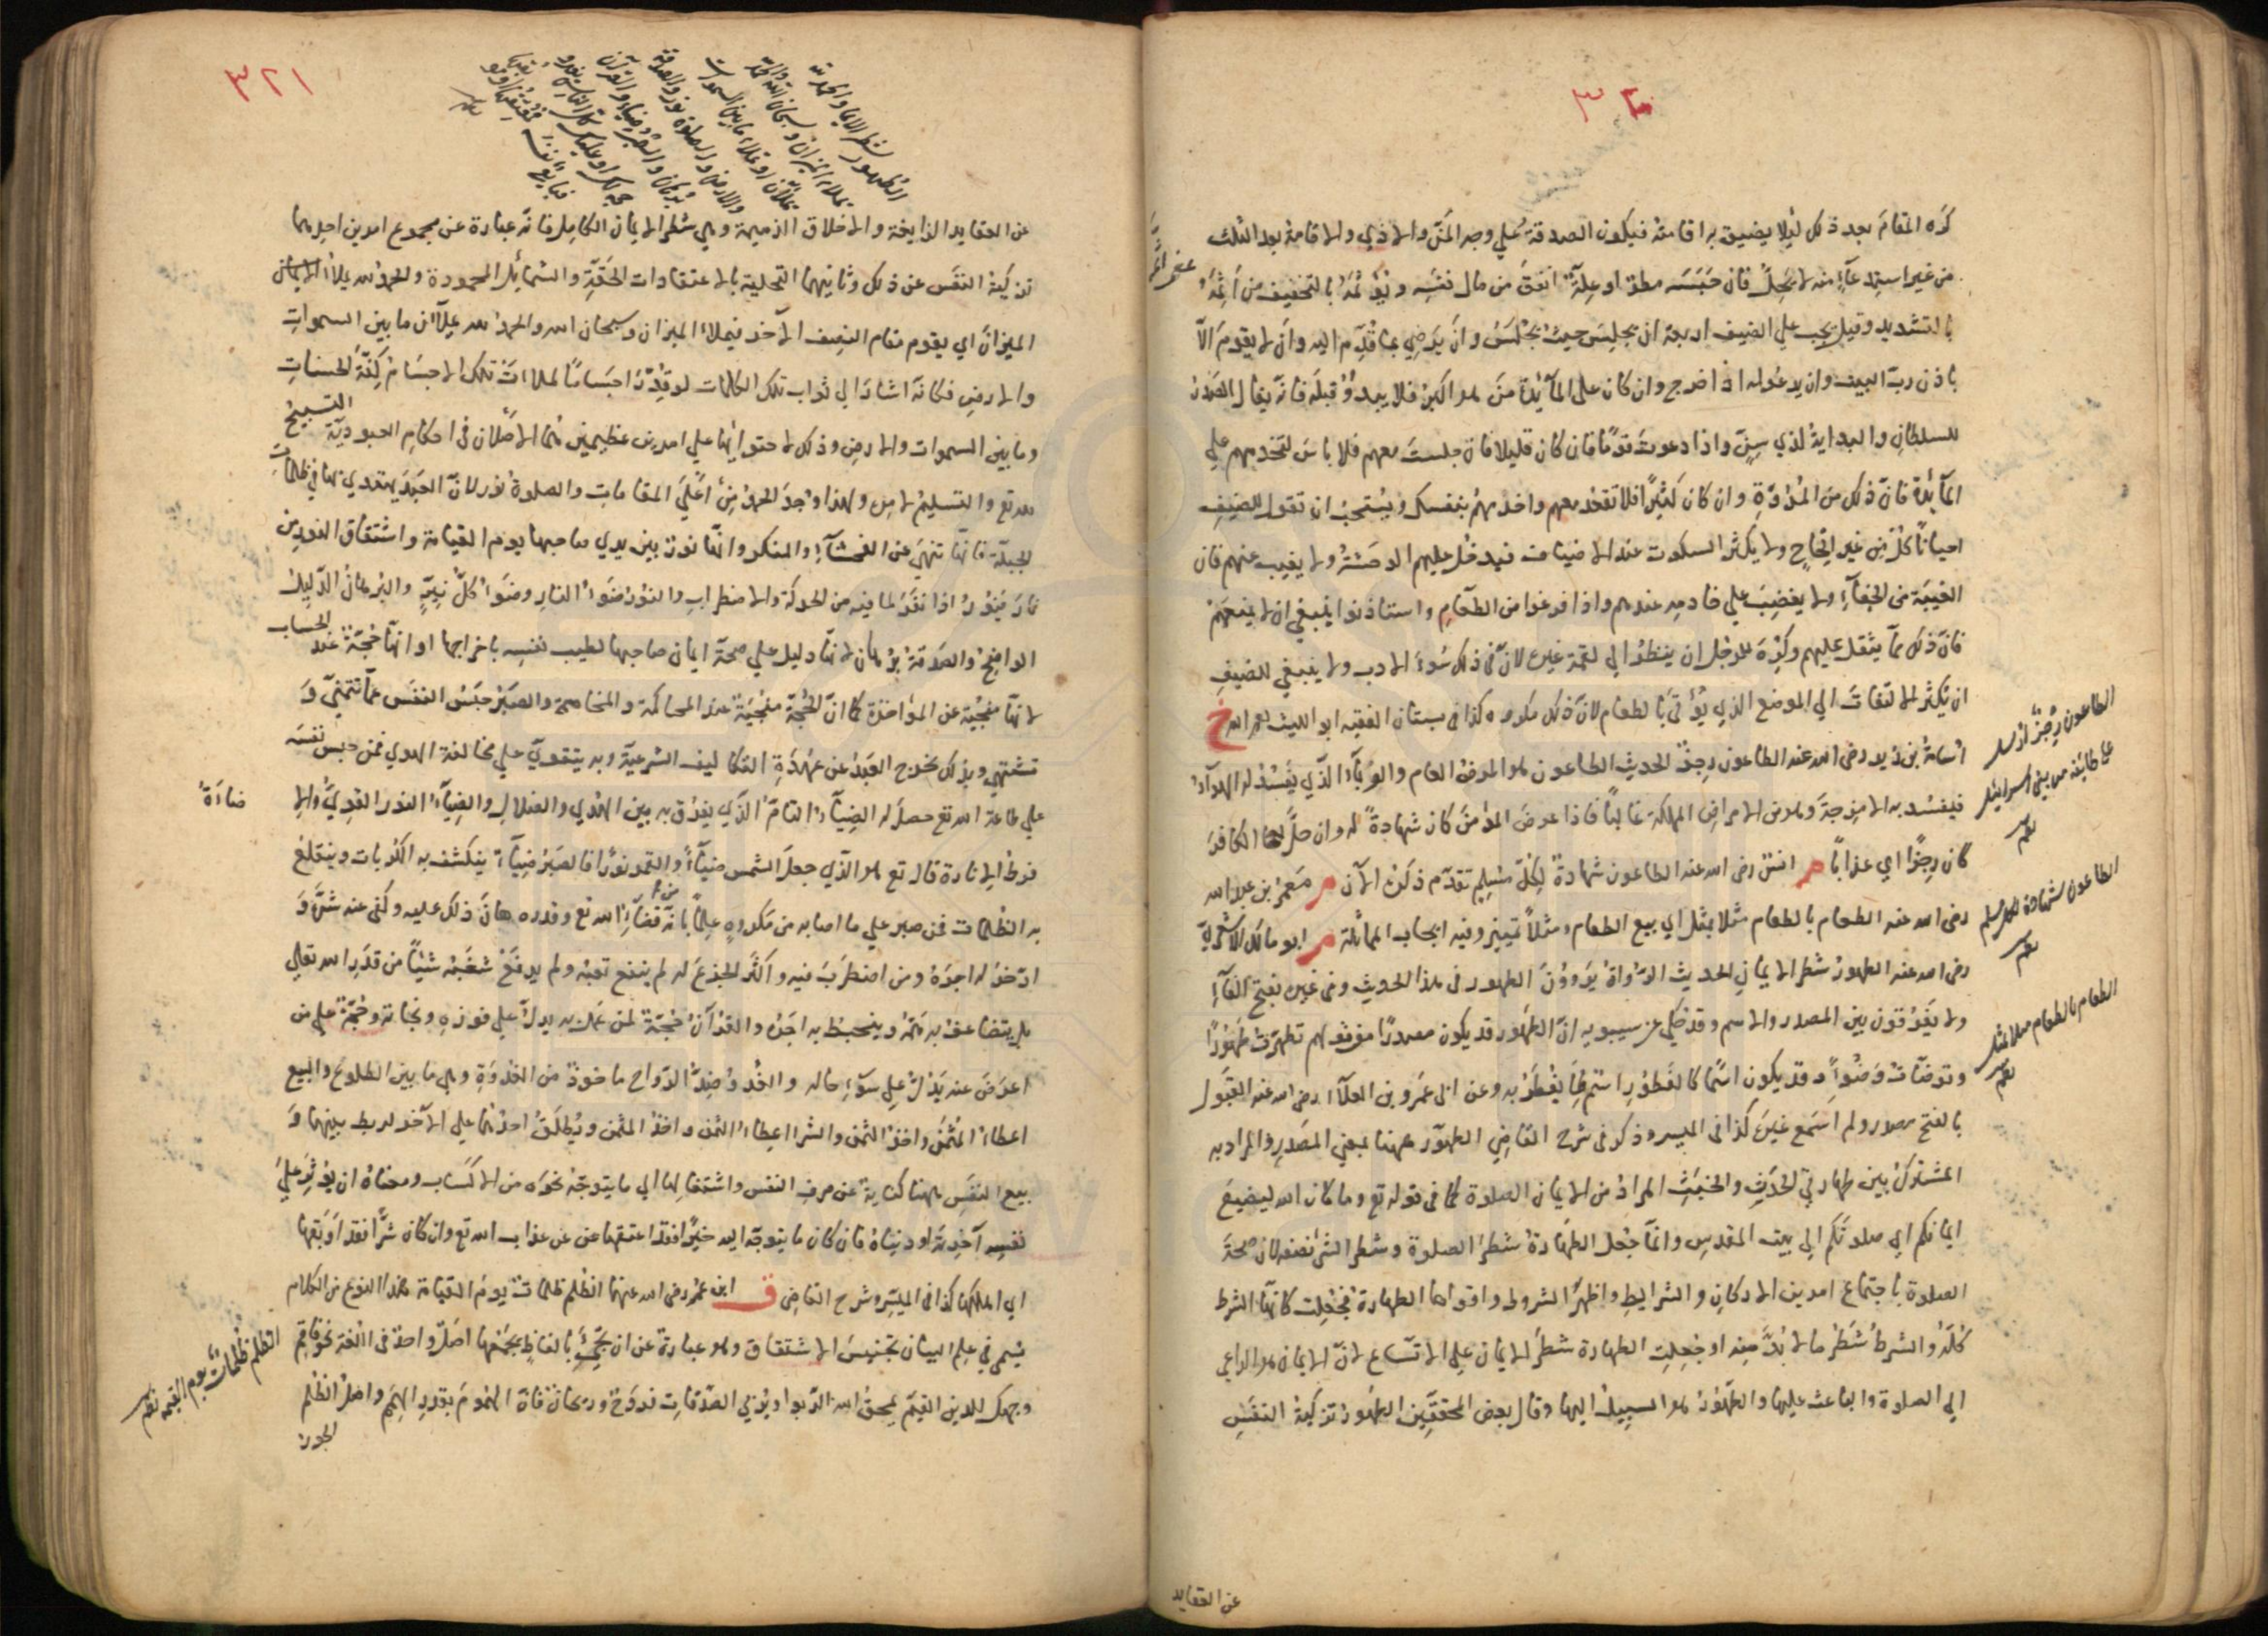 كره المقام بعد ذلك لئلا يضيق به اقامته فيكون الصدقة على وجه المن والاذي والاقامة بعد الثلث
من غير استدعاء منه لا يحل فان حبسه مطر او علة انفق من مال نفسه و يؤثمه بالتخفيف من اثمه
بالتشديد وقيل يجب علي الضيف اربعة ان يجلس حيث يجلس وان يرضي بما قدم اليه وان لا يقوم الا
باذن رب البيت وان يدعو له اذا خرج وان كان على المائدة من هو اكبر فلا يبدؤ قبله فانه يقال الصدر
للسلطان والبداية لذي سن واذا دعوت قوما فان كان قليلا فان جلست معهم فلا باس لتخدمهم علي
المائدة فان ذلك من المروة وان كان كثيرا فلا تقعد معهم واخدمهم بنفسك ويستحب ان تقول للضيف
احيانا كل من غير الحاح ولا يكثر السكوت عند الاضياف فيدخل عليهم الوحشة ولا يغيب عنهم فان
الغيبة من الجفاء ولا يغضب علي خادمه عندهم واذا فرغوا من الطعام واستاذنوا ينبغي ان لا يمنعهم
فان ذلك مما يثقل عليهم وكره للرجل ان ينظر الي لقمة غيره لان في ذلك سوء الادب ولا ينبغي للضيف
ان يكثر الالتفات الي الموضع الذي يؤتي بالطعام لان ذلك مكروه كذا في بستان الفقيه ابو الليث رحمه الله خ
اسامة بن زيد رضى الله عنه الطاعون رجز الحديث الطاعون هو المرض العام والوباء الذي يفسد له الهواء
فيفسد به الامزجة وهو من الامراض المهلكة غالبا فاذا عرض المؤمن كان شهادة له وان حل بها الكافر
كان رجزا اي عذابا م انس رضى الله عنه الطاعون شهادة لكل مسلم تقدم ذكره الآن م معمر بن عبد الله
رضى الله عنه الطعام بالطعام مثلا بمثل اي بيع الطعام ومثلا تمييز وفيه ايجاب المماثلة م ابو مالك الاشعري
رضى الله عنه الطهور شطر الايمان الحديث الرواة يروون الطهور في هذا الحديث وفي غيره بفتح الفاء
ولا يفرقون بين المصدر والاسم وقد حكي عن سيبويه ان الطهور قد يكون مصدرا من قولهم تطهرت طهورا
وتوضات وضوء وقد يكون اسما كالفطور اسم لما يفطر به وعن ابي عمرو بن العلاء رضى الله عنه القبول
بالفتح مصدر ولم اسمع غيره كذا في الميسر وذكر في شرح القاضي الطهور ههنا بمعني المصدر والمراد به
المشترك بين طهارتي الحدث والخبث المراد من الايمان الصلوة كما في قوله تع وما كان الله ليضيع
ايمانكم اي صلوتكم الي بيت المقدس وانما جعل الطهارة شطر الصلوة وشطر الشئ نصفه لان صحة
الصلوة باجتماع امرين الاركان والشرايط واظهر الشروط واقواها الطهارة فجعلت كانها الشرط
كله والشرط شطر ما لا بد منه او جعلت الطهارة شطر الايمان علي الاتساع لان الايمان هو الداعي
الي الصلوة والباعث عليها والطهور هو السبيل اليها وقال بعض المحققين الطهور تزكية النفس
عن العقايد
الطاعون رجز ارسل
على طائفة من بني اسرائيل
الطاعون شهادة لكل مسلم
الطعام بالطعام مثلا بمثل
٣٢١
الطهور شطر الايمان والحمد لله
تملاء الميزان وسبحان الله والحمد لله
تملآن او تملاء ما بين السموات
والارض والصلوة نور والصدقة
برهان والصبر ضياء والقرآن
حجة لك او عليك كل الناس يغدو
فبايع نفسه فمعتقها او موبقها
عن العقايد الزايغة والاخلاق الذميمة وهي شطر الايمان الكامل فانه عبارة عن مجموع امرين احدهما
تزكية النفس عن ذلك وثانيهما التحلية بالاعتقادات الحقة والشمائل المحمودة والحمد لله يملأ الايمان
الميزان اي يقوم مقام النصف الآخر فيملاء الميزان وسبحان الله والحمد لله يملآن ما بين السموات
والارض فكانه اشار الي ثواب تلك الكلمات لو قدر اجساما لملات تلك الاجسام كفة الحسنات
وما بين السموات والارض وذلك لاحتوائها علي امرين عظيمين هما الاصلان في احكام العبودية التسبيح
لله تع والتسليم لامره ولهذا وجد الحمد من اعلي المقامات والصلوة نور لان العبد يهتدي بها في ظلمات
الجهلة فانها تنهي عن الفحشاء والمنكر وانها نور بين يدي صاحبها يوم القيامة واشتقاق النور من
نار ينور اذا نفر لما فيه من الحركة والاضطراب والنور ضوء النار وضوء كل نير والبرهان الدليل
الواضح والصدقة برهان لانها دليل علي صحة ايمان صاحبها لطيب نفسه باخراجها او انها حجة عند الحساب
لانها منجية عن المؤاخذة كما ان الحجة منجية عند المحاكمة والمخاصمة والصبر حبس النفس عما تتمني و
تشتهي وبذلك يخرج العبد عن عهدة التكاليف الشرعية وبه يتقوي علي مخالفة الهوي فمن حبس نفسه
علي طاعة الله تع حصل له الضياء التام الذي يفرق به بين الهدي والضلال والضياء النور القوي والا
ضاءة
فرط الانارة قال تع هو الذي جعل الشمس ضياء والقمر نورا فالصبر ضياء ينكشف به الكربات وينقلع
به الظلمات فمن صبر علي ما اصابه من مكروه علما بانه من قضاء الله تع وقدره هان ذلك عليه وكفي عنه شره و
ادخر له اجره ومن اضطرب فيه واكثر الجزع له لم ينفع تعبه ولم يدفع شغبه شيئا من قدر الله تعالي
بل يتضاعف به همه وينحبط به اجره والقرآن حجة لمن عمل به يدل علي فوزه ونجاته وحجة علي من
اعرض عنه يدل علي سوء حاله والغدو ضد الرواح ماخوذ من الغدوة وهي ما بين الطلوع والبيع
اعطاء المثمن واخذ الثمن والشراء اعطاء الثمن واخذ المثمن ويطلق احدهما علي الآخر لربط بينهما و
بيع النفس ههنا كناية عن صرف النفس واشتغالها الي ما يتوجه نحوه من الاكساب ومعناه ان يؤثر علي
نفسه آخرته او دنياه فان كان ما يتوجه اليه خيرا فقد اعتقها عن عذاب الله تع وان كان شرا فقد اوبقها
اي اهلكها كذا في الميسر وشرح القاضي ق ابن عمر رضى الله عنهما الظلم ظلمات يوم القيامة هذا النوع من الكلام
يسمي في علم البيان تجنيس الاشتقاق وهو عبارة عن ان يجئ بالفاظ يجمعها اصل واحد في اللغة نحو فاقم
وجهك للدين القيم يمحق الله الربوا ويربي الصدقات فروح وريحان فان الهموم بقدر الهمم واصل الظلم
الجور
الظلم ظلمات يوم القيمة